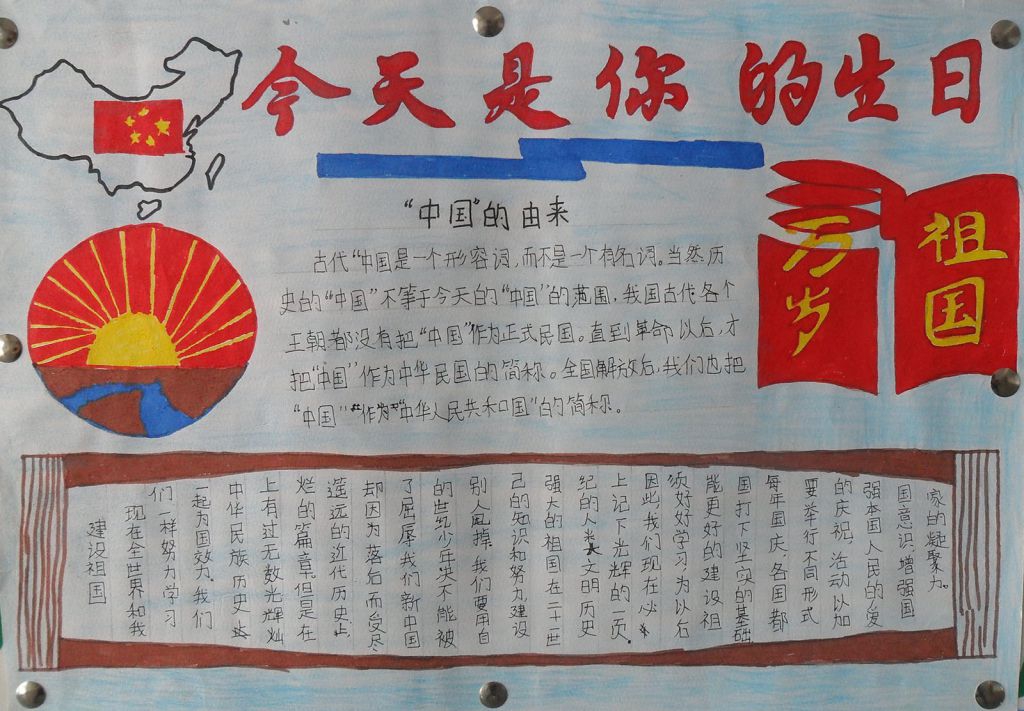 今天是你的生日
"中国"的由来
古代"中国是一个形容词,而不是一个有名词。当然历
史的"中国"不等于今天的"中国"的范围,我国古代各个
王朝都没有把"中国"作为正式民国。直到革命以后,才
把"中国"作为中华民国的简称。全国解放后,我们也把
"中国"作为"中华人民共和国"的简称。
祖国
万岁
建设祖国
现在全世界和我
们一样努力学习
一起为国效力。我们
中华民族历史
上有过无数光辉灿
烂的篇章。但是在
遥远的近代历史上
却因为落后而受尽
了屈辱。我们新中国
的世纪少年决不能被
别人甩掉。我们要用自
己的知识和努力建设
强大的祖国在二十一世
纪的人类文明历史
上记下光辉的一页。
因此,我们现在必
须好好学习为以后
能更好的建设祖
国打下坚实的基础
每年国庆,各国都
要举行不同形式
的庆祝,活动以加
强本国人民的爱
国意识,增强国
家的凝聚力。